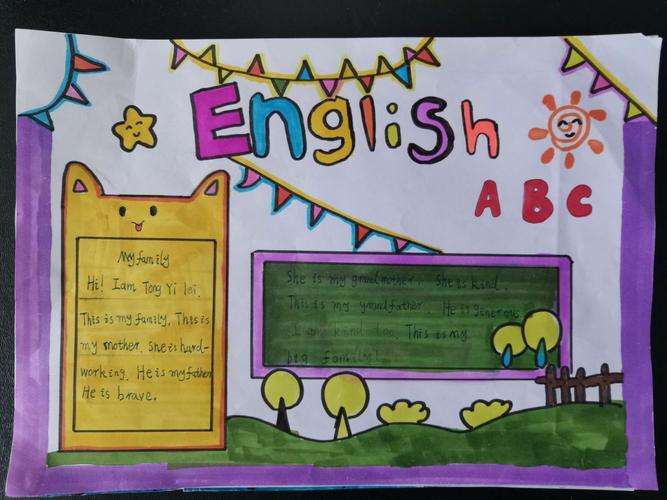 English
A B C
My family
Hi! I am Tong Yi lei.
This is my family. This is
my mother. She is hard-
working. He is my father
He is brave.
She is my grandmother. She is kind.
This is my grandfather. He is generous
This is my
big family!